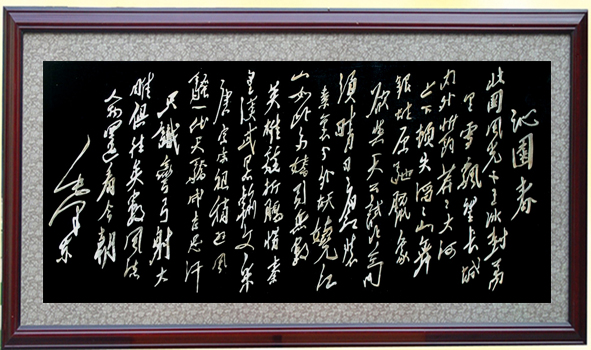 沁園春
北國風光千里冰封萬
里雪飄望長城
内外惟餘莽莽大河
上下頓失滔滔山舞
銀蛇原馳臘象
欲與天公試比高
須晴日看紅裝
素裹分外妖嬈江
山如此多嬌引無數
英雄競折腰惜秦
皇漢武略輸文采
唐宗宋祖稍遜風
騷一代天驕成吉思汗
只識彎弓射大
雕俱往矣數風流
人物還看今朝
毛澤東